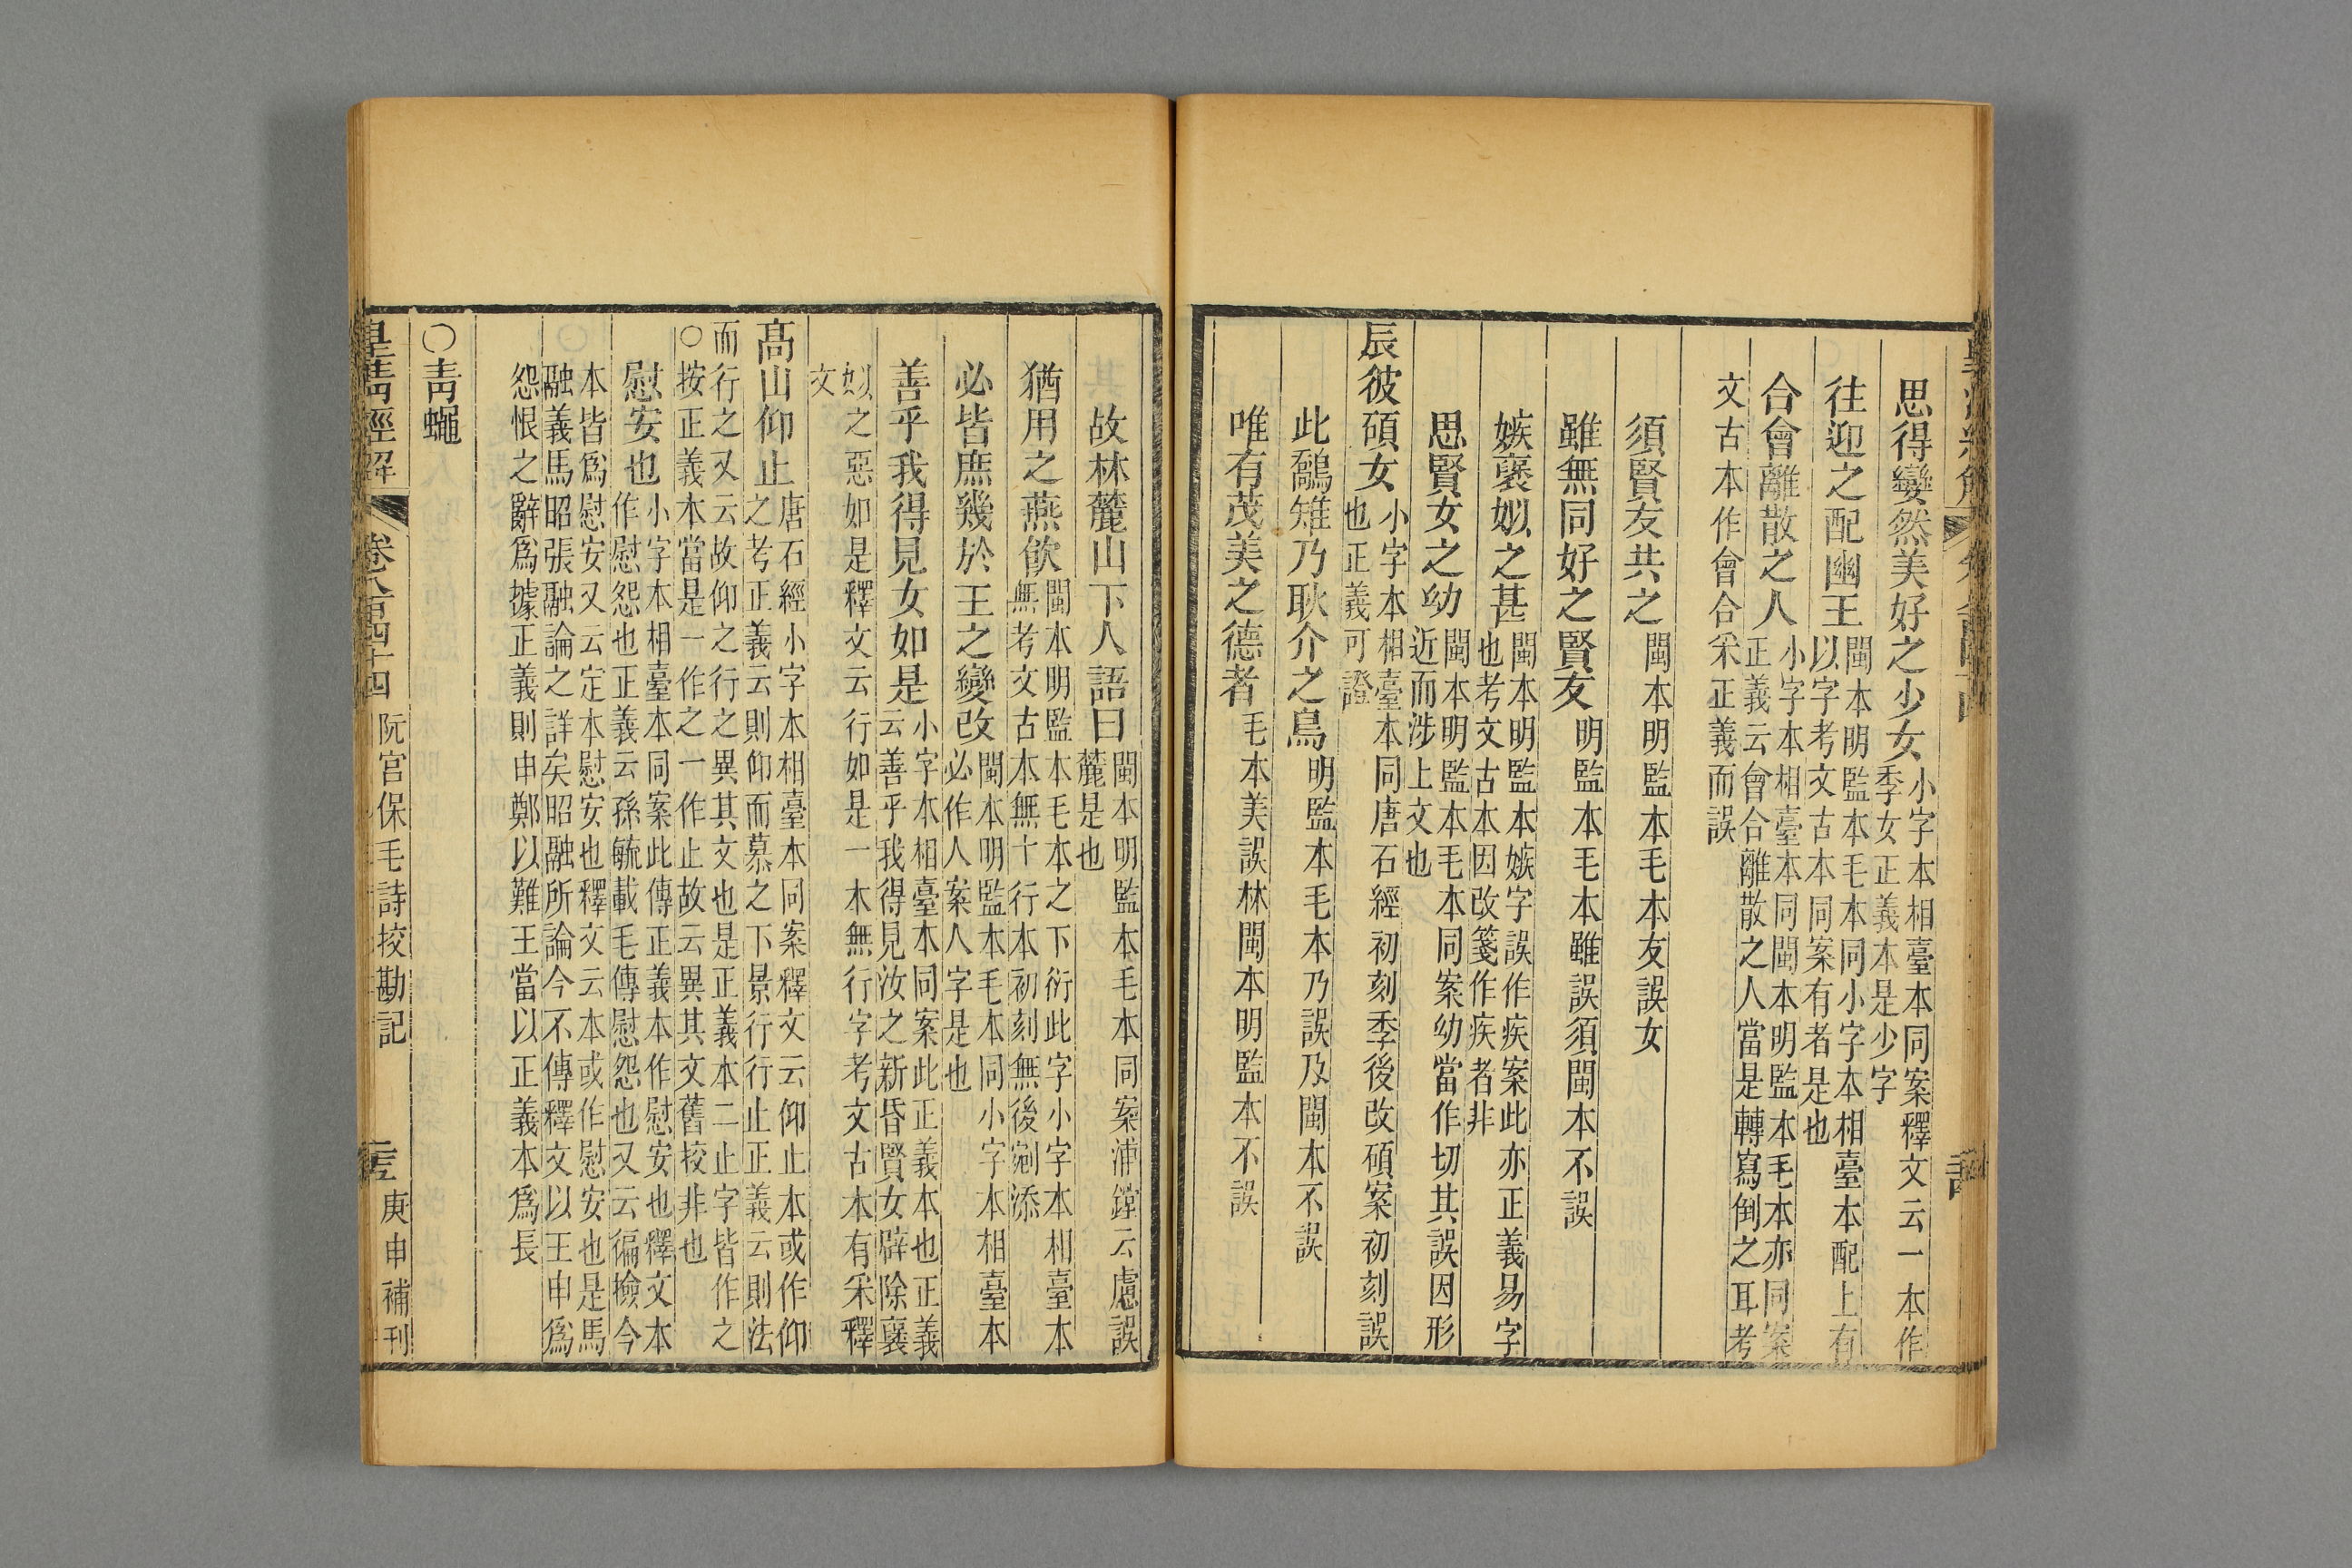 思得孌然美好之少女小字本相臺本同案釋文云一本作
季女正義本是少字
往迎之配幽王閩本明監本毛本同小字本相臺本配上有
以字考文古本同案有者是也
合會離散之人小字本相臺本同閩本明監本毛本亦同案
正義云會合離散之人當是轉寫倒之耳考
文古本作會合采正義而誤
須賢友共之閩本明監本毛本友誤女
雖無同好之賢友明監本毛本雖誤須閩本不誤
嫉襃姒之甚閩本明監本嫉字誤作疾案此亦正義易字
也考文古本因改箋作疾者非
思賢女之幼閩本明監本毛本同案幼當作切其誤因形
近而涉上文也
辰彼碩女小字本相臺本同唐石經初刻季後改碩案初刻誤
也正義可證
此鷮雉乃耿介之鳥明監本毛本乃誤及閩本不誤
唯有茂美之德者毛本美誤林閩本明監本不誤
故林麓山下人語曰閩本明監本毛本同案浦鏜云慮誤
麓是也
猶用之燕飲閩本明監本毛本之下衍此字小字本相臺本
無考文古本無十行本初刻無後剜添
必皆庶幾於王之變改閩本明監本毛本同小字本相臺本
必作人案人字是也
善乎我得見女如是小字本相臺本同案此正義本也正義
云善乎我得見汝之新昏賢女辟除襃
姒之惡如是釋文云行如是一本無行字考文古本有采釋
文
高山仰止唐石經小字本相臺本同案釋文云仰止本或作仰
之考正義云則仰而慕之下景行行止正義云則法
而行之又云故仰之行之異其文也是正義本二止字皆作之
○按正義本當是一作之一作止故云異其文舊挍非也
慰安也小字本相臺本同案此傳正義本作慰安也釋文本
作慰怨也正義云孫毓載毛傳慰怨也又云徧檢今
本皆爲慰安又云定本慰安也釋文云本或作慰安也是馬
融義馬昭張融論之詳矣昭融所論今不傳釋文以王申爲
怨恨之辭爲據正義則申鄭以難王當以正義本爲長
○靑蠅
皇淸經解 卷八百四十四 阮宮保毛詩挍勘記 庚申補刊